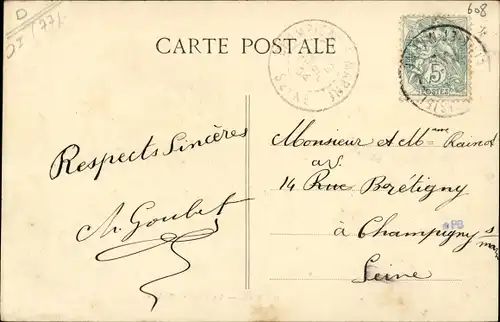 D
DI/77/.
608
CARTE POSTALE
5c
POSTES
Respects Sincères
M. Goubet
Monsieur et Mme Rainot
av.
14 Rue Brétigny
à Champigny s/
marne
Seine
PB